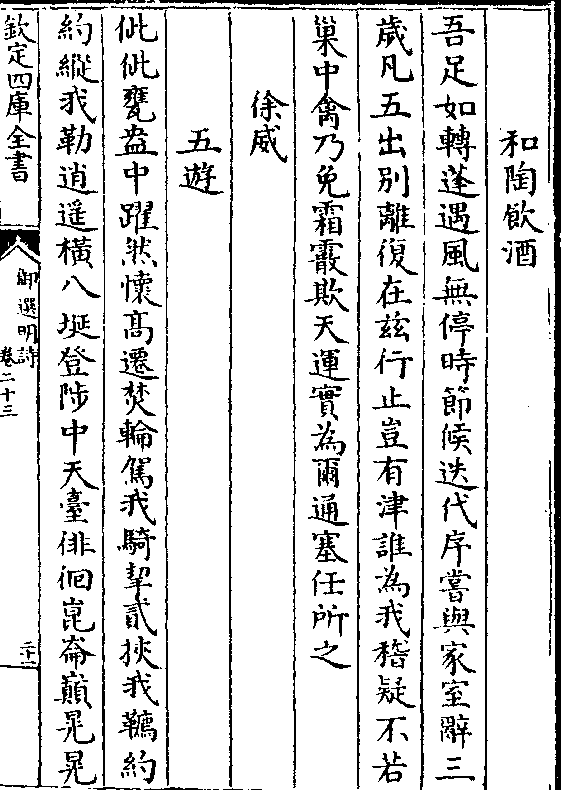 和陶飲酒
吾足如轉蓬遇風無停時節候迭代序嘗與家室辭三
歲凡五出別離復在兹行止豈有津誰為我稽疑不若
巢中禽乃免霜霰欺天運實為爾通塞任所之
徐威
五遊
仳仳甕盎中躍然懷髙遷焚輪駕我騎挈貳挾我韀約
約縱我勒逍遥橫八埏登陟中天臺徘徊崑崙巔晃晃
欽定四庫全書
御選明詩
卷二十三